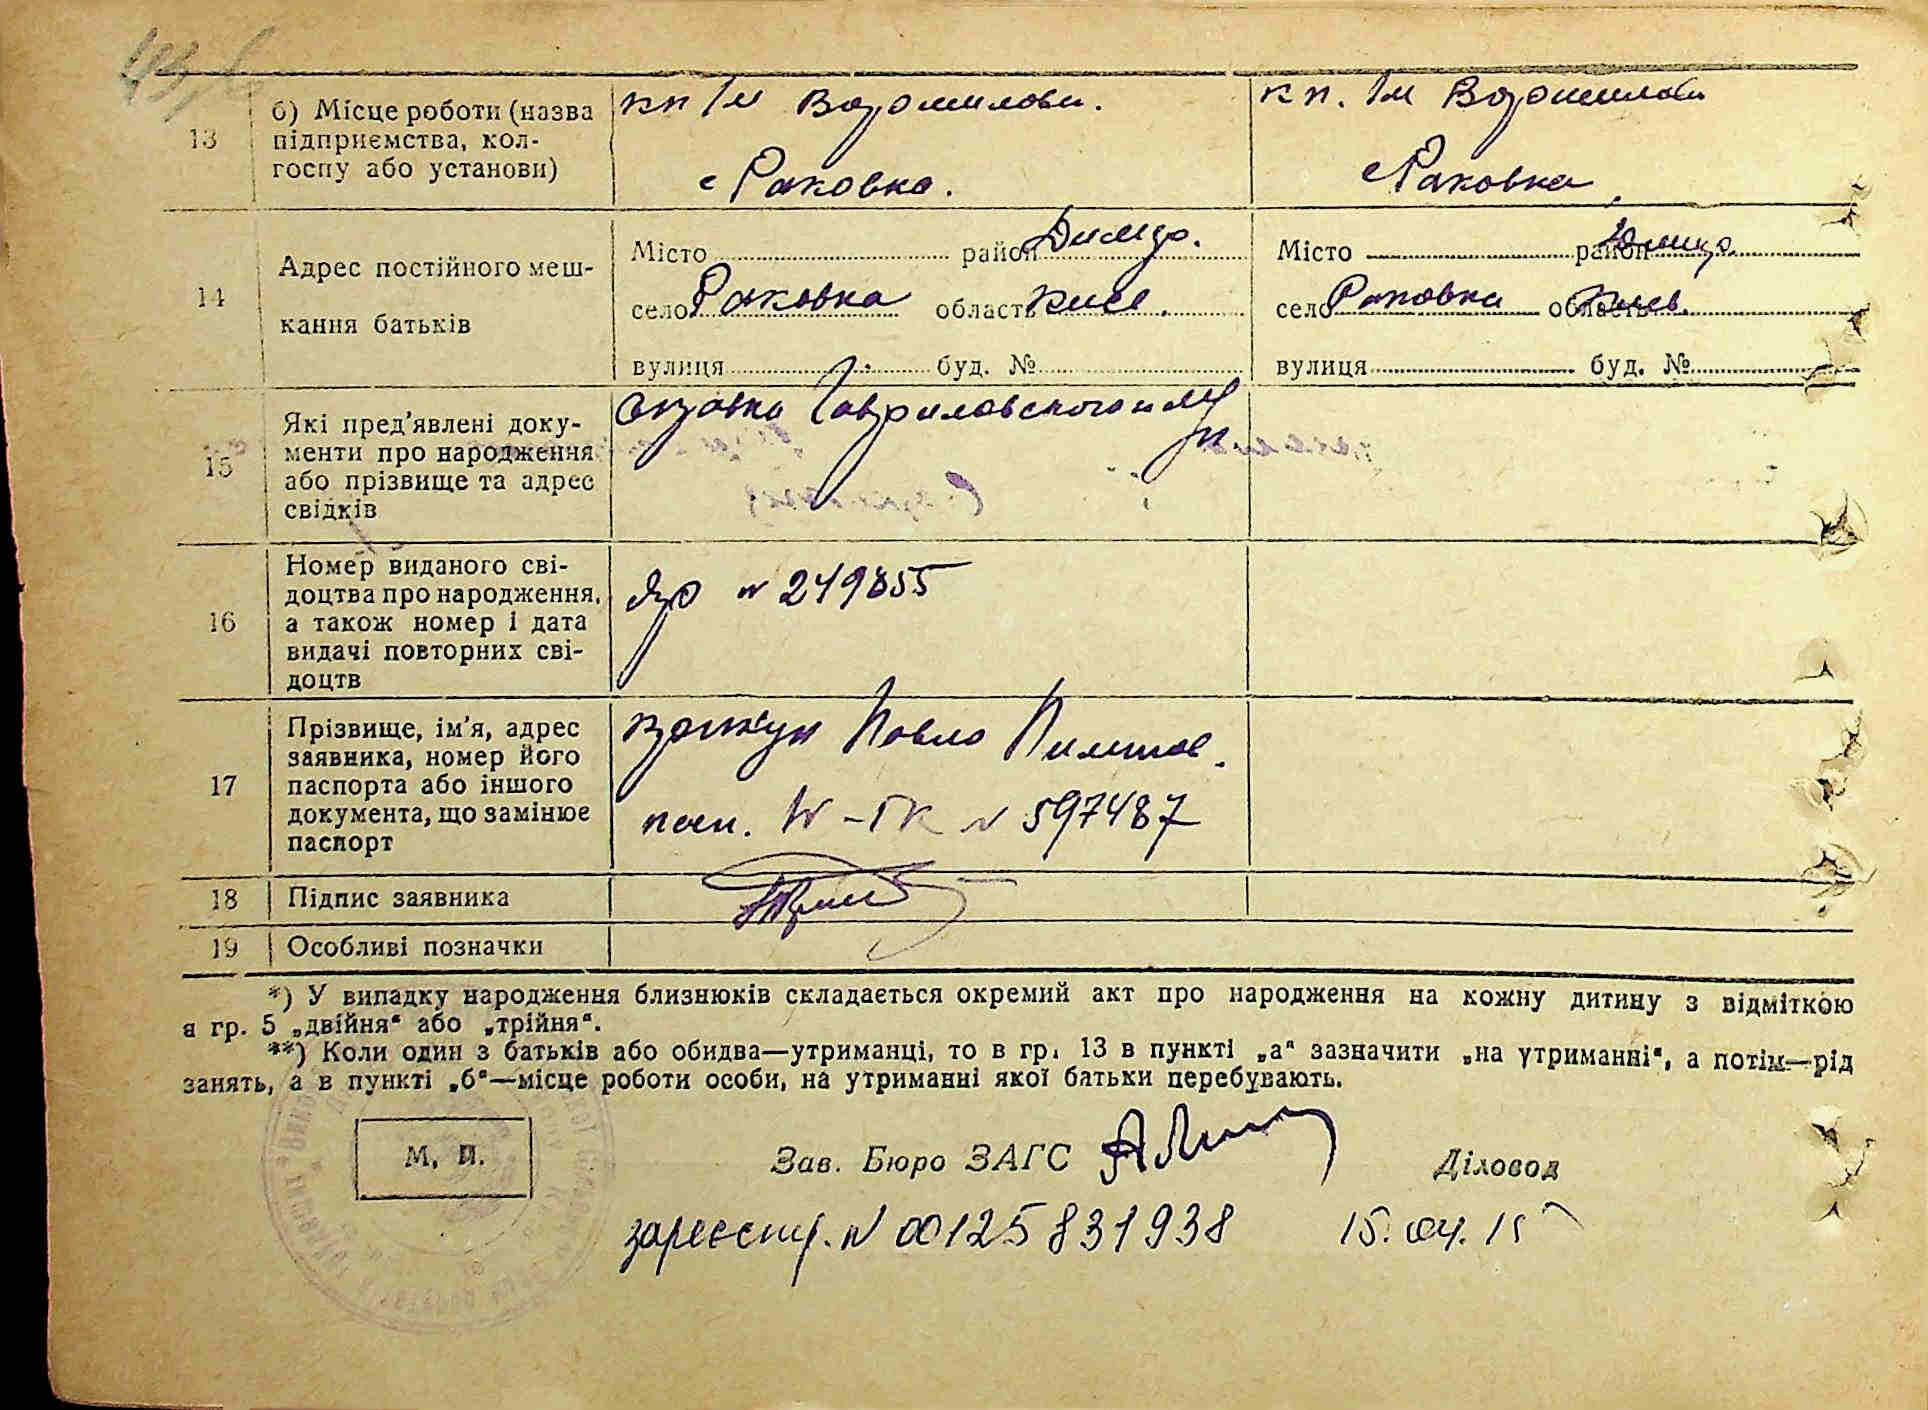 13
б) Місце роботи (назва
підприємства, кол-
госпу або установи)
кп Ім Ворошилова.
с Раковка.
кп. Ім Ворошилова
с Раковка
14
Адрес постійного меш-
кання батьків
Місто район Димер.
село Раковка область Киев.
вулиця буд. №
Місто район Димер.
село Раковка область Киев.
вулиця буд. №
15
Які пред'явлені доку-
менти про народження
або прізвище та адрес
свідків
справка Гавриловского
16
Номер виданого сві-
доцтва про народження,
а також номер і дата
видачі повторних сві-
доцтв
№ 249855
17
Прізвище, ім'я, адрес
заявника, номер його
паспорта або іншого
документа, що замінює
паспорт
Павло
пасп. IV-ГК № 597487
18
Підпис заявника
19
Особливі позначки
*) У випадку народження близнюків складається окремий акт про народження на кожну дитину з відміткою
в гр. 5 „двійня“ або „трійня“.
**) Коли один з батьків або обидва—утриманці, то в гр. 13 в пункті „а“ зазначити „на утриманні“, а потім—рід
занять, а в пункті „б“—місце роботи особи, на утриманні якої батьки перебувають.
М. П.
Зав. Бюро ЗАГС
Діловод
зареєстр. N 00125831938 15.04.15